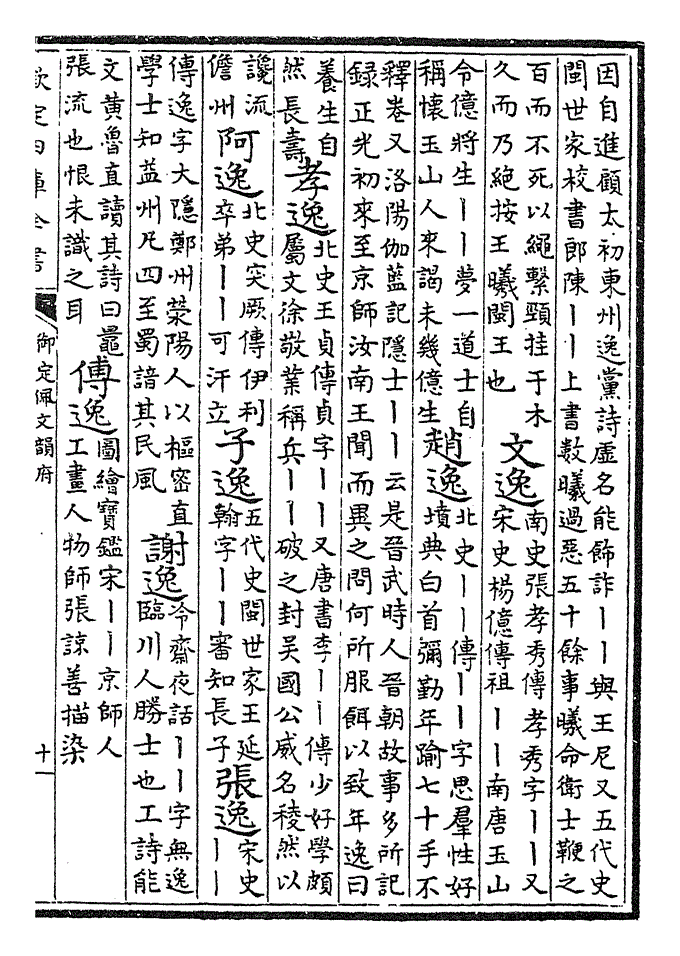 因自進顧太初東州逸黨詩虚名能飾詐丨丨與王尼又五代史
閩世家校書郎陳丨丨上書數曦過惡五十餘事曦命衛士鞭之
百而不死以繩繫頸挂于木
久而乃絶按王曦閩王也
文逸
南史張孝秀傳孝秀字丨丨又
宋史楊億傳祖丨丨南唐玉山
令億將生丨丨夢一道士自
稱懷玉山人來謁未幾億生
趙逸
北史丨丨傳丨丨字思羣性好
墳典白首彌勤年踰七十手不
釋卷又洛陽伽藍記隱士丨丨云是晉武時人晉朝故事多所記
録正光初來至京師汝南王聞而異之問何所服餌以致年逸曰
養生自
然長壽
孝逸
北史王貞傳貞字丨丨又唐書李丨丨傳少好學頗
屬文徐敬業稱兵丨丨破之封吴國公威名稜然以
讒流
儋州
阿逸
北史突厥傳伊利
卒弟丨丨可汗立
子逸
五代史閩世家王延
翰字丨丨審知長子
張逸
宋史
丨丨
傳逸字大隱鄭州滎陽人以樞密直
學士知益州凡四至蜀諳其民風
謝逸
冷齋夜話丨丨字無逸
臨川人勝士也工詩能
文黄魯直讀其詩曰鼂
張流也恨未識之耳
傅逸
圖繪寶鑑宋丨丨京師人
工畫人物師張諒善描染
欽定四庫全書
御定佩文韻府
十一